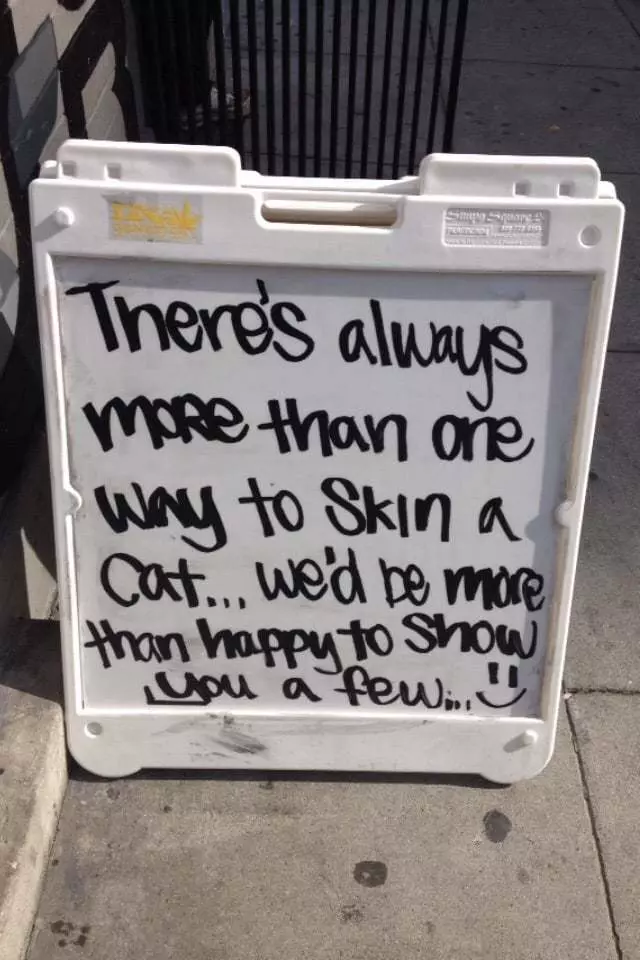 There's always
more than one
way to Skin a
Cat... we'd be more
than happy to Show
you a few...